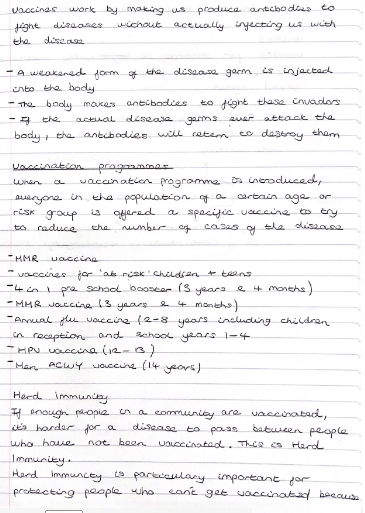 vaccines work by making us produce antibodies to
fight diseases without actually injecting us with
the disease
- A weakened form of the disease germ is injected
into the body
- The body makes antibodies to fight these invaders
- If the actual disease germs ever attack the
body, the antibodies will return to destroy them
Vaccination programmes
When a vaccination programme is introduced,
everyone in the population of a certain age or
risk group is offered a specific vaccine to try
to reduce the number of cases of the disease
- MMR vaccine
- vaccines for 'at risk' children + teens
- 4 in 1 pre school booster (3 years & 4 months)
- MMR vaccine (3 years & 4 months)
- Annual flu vaccine (2-8 years including children
in reception and school years 1-4
- HPV vaccine (12-13)
- Men ACWY vaccine (14 years)
Herd Immunity
If enough people in a community are vaccinated,
it's harder for a disease to pass between people
who have not been vaccinated. This is Herd
Immunity.
Herd Immunity is particulary important for
protecting people who can't get vaccinated because